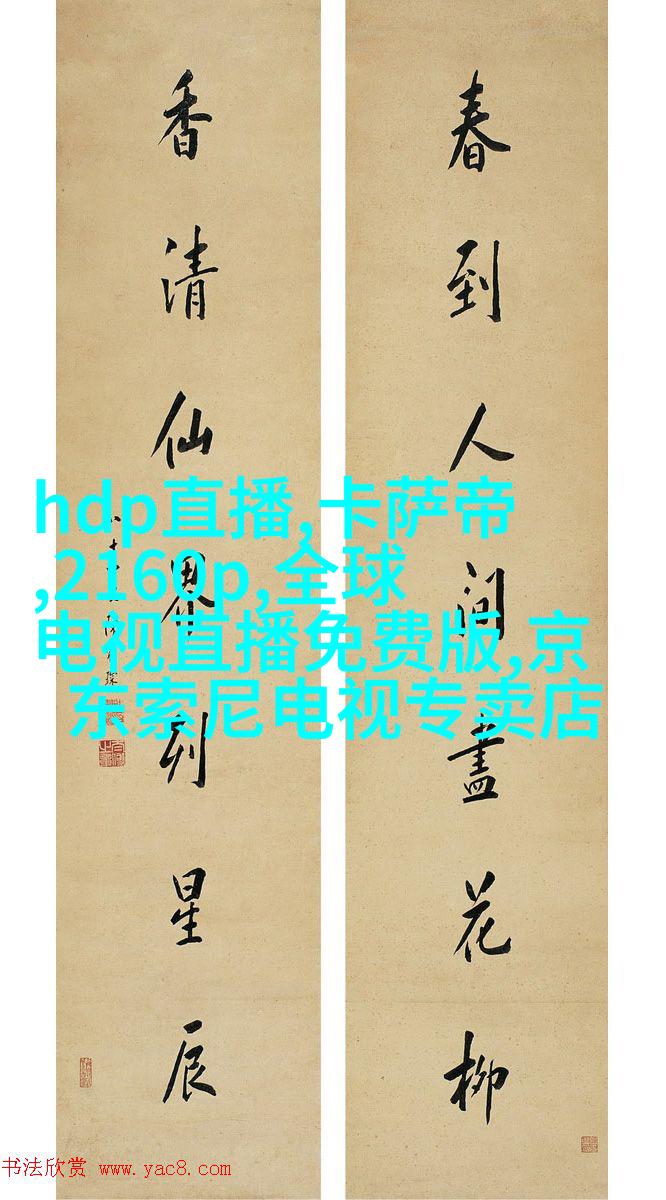 春到人间盡花柳
香清仙界列星辰
hdp直播,卡萨帝
,2160p,全球
电视直播免费版,京
东索尼电视专卖店
书法欣赏 www.yac8.com